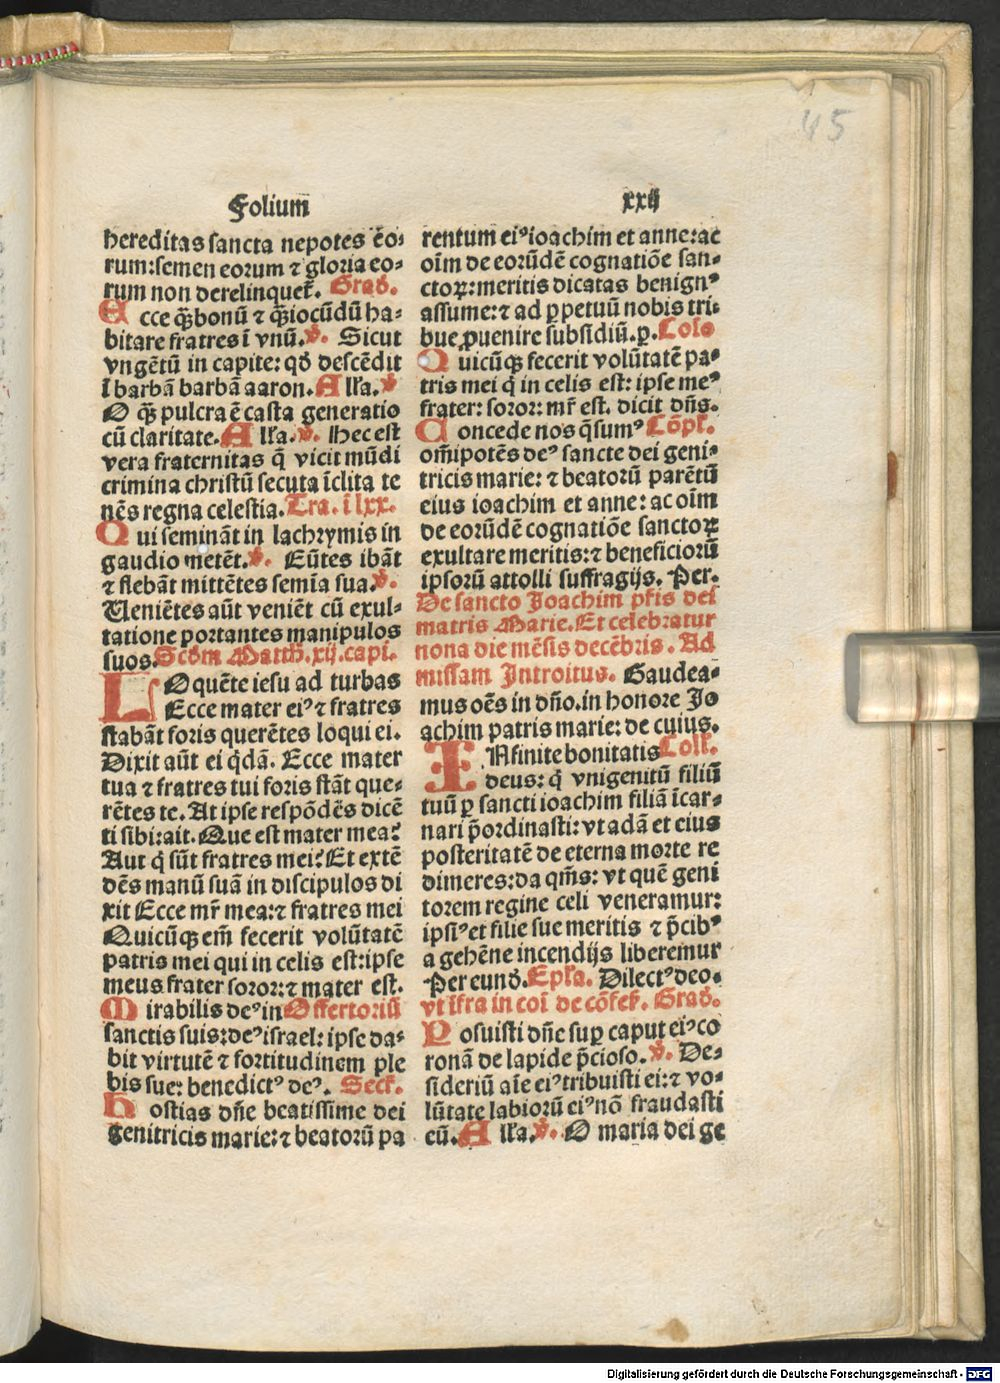 45
Folium
xxij
hereditas sancta nepotes eō⸗
rum:semen eorum ⁊ gloria eo⸗
rum non derelinquet̄. Grad.
Ecce qꝫ̄ bonū ⁊ qꝫ̄ iocūdū ha⸗
bitare fratres ī vnū. ℣. Sicut
vngētū in capite: qđ descēdit
ī barbā barbā aaron. Alľa. ℣
O qꝫ̄ pulcra ē casta generatio
cū claritate. Alľa. ℣. Hec est
vera fraternitas q̄ vicit mūdi
crimina christū secuta īclita te
nēs regna celestia. Tra. ī lxx.
Qui semināt in lachrymis in
gaudio metēt. ℣. Eūtes ibāt
⁊ flebāt mittētes semīa sua. ℣.
Ueniētes aūt veniēt cū exul⸗
tatione portantes manipulos
suos. Scđm Matth. xij. capi.
LOquēte iesu ad turbas
Ecce mater eiꝰ ⁊ fratres
stabāt foris querētes loqui ei.
Dixit aūt ei q̇dā. Ecce mater
tua ⁊ fratres tui foris stāt que⸗
rētes te. At ipse respōdēs dicē
ti sibi:ait. Que est mater mea?
Aut q̇ sūt fratres mei? Et extē
dēs manū suā in discipulos di
xit Ecce mr̄ mea:⁊ fratres mei
Quicūqꝫ em̄ fecerit volūtatē
patris mei qui in celis est:ipse
meus frater soror:⁊ mater est.
Mirabilis deꝰ in Offertoriū
sanctis suis:deꝰ israel: ipse da⸗
bit virtutē ⁊ fortitudinem ple
bis sue: benedictꝰ deꝰ. Secr̄.
Hostias dn̄e beatissime dei
genitricis marie:⁊ beatorū pa
rentum eiꝰ ioachim et anne:ac
oīm de eorūdē cognatiōe san⸗
ctoꝝ:meritis dicatas benignꝰ
assume:⁊ ad ꝑpetuū nobis tri⸗
bue ꝓuenire subsidiū. ꝑ. Cōio
Quicūqꝫ fecerit volūtatē pa⸗
tris mei q̇ in celis est: ipse meꝰ
frater: soror: mr̄ est. dicit dn̄s.
Concede nos q̄sumꝰ Cōpl̄.
om̄ipotēs deꝰ sancte dei geni⸗
tricis marie: ⁊ beatorū parētū
eius ioachim et anne: ac oīm
de eorūdē cognatiōe sanctoꝝ
exultare meritis:⁊ beneficiorū
ipsorū attolli suffragijs. Per.
De sancto Joachim pr̄is dei
matris Marie. Et celebratur
nona die mēsis decēbris. Ad
missam Introitus. Gaudea⸗
mus oēs in dn̄o. in honore Jo
achim patris marie: de cuius.
INfinite bonitatis Coll̄.
deus: q̇ vnigenitū filiū
tuū ꝑ sancti ioachim filiā īcar⸗
nari p̄ordinasti: vt adā et eius
posteritatē de eterna morte re
dimeres:da qm̄s: vt quē geni
torem regine celi veneramur:
ipsiꝰ et filie sue meritis ⁊ p̄cibꝰ
a gehēne incendijs liberemur
Per eunđ. Epľa. Dilectꝰ deo.
vt īfra in coī de cōfes̄. Grad.
Posuisti dn̄e suꝑ caput eiꝰ co
ronā de lapide p̄cioso. ℣. De⸗
sideriū aīe eiꝰ tribuisti ei:⁊ vo⸗
lūtate labiorū eiꝰ nō fraudasti
eū. Alľa. ℣. O maria dei ge
Digitalisierung gefördert durch die Deutsche Forschungsgemeinschaft - DFG